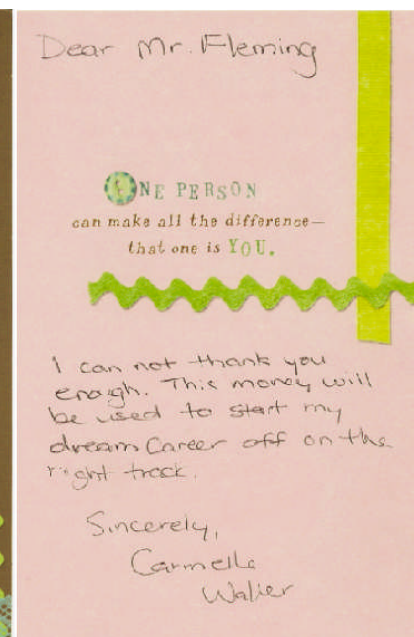 Dear Mr. Fleming
ONE PERSON
can make all the difference—
that one is YOU.
I can not thank you
enough. This money will
be used to start my
dream Career off on the
right track.
Sincerely,